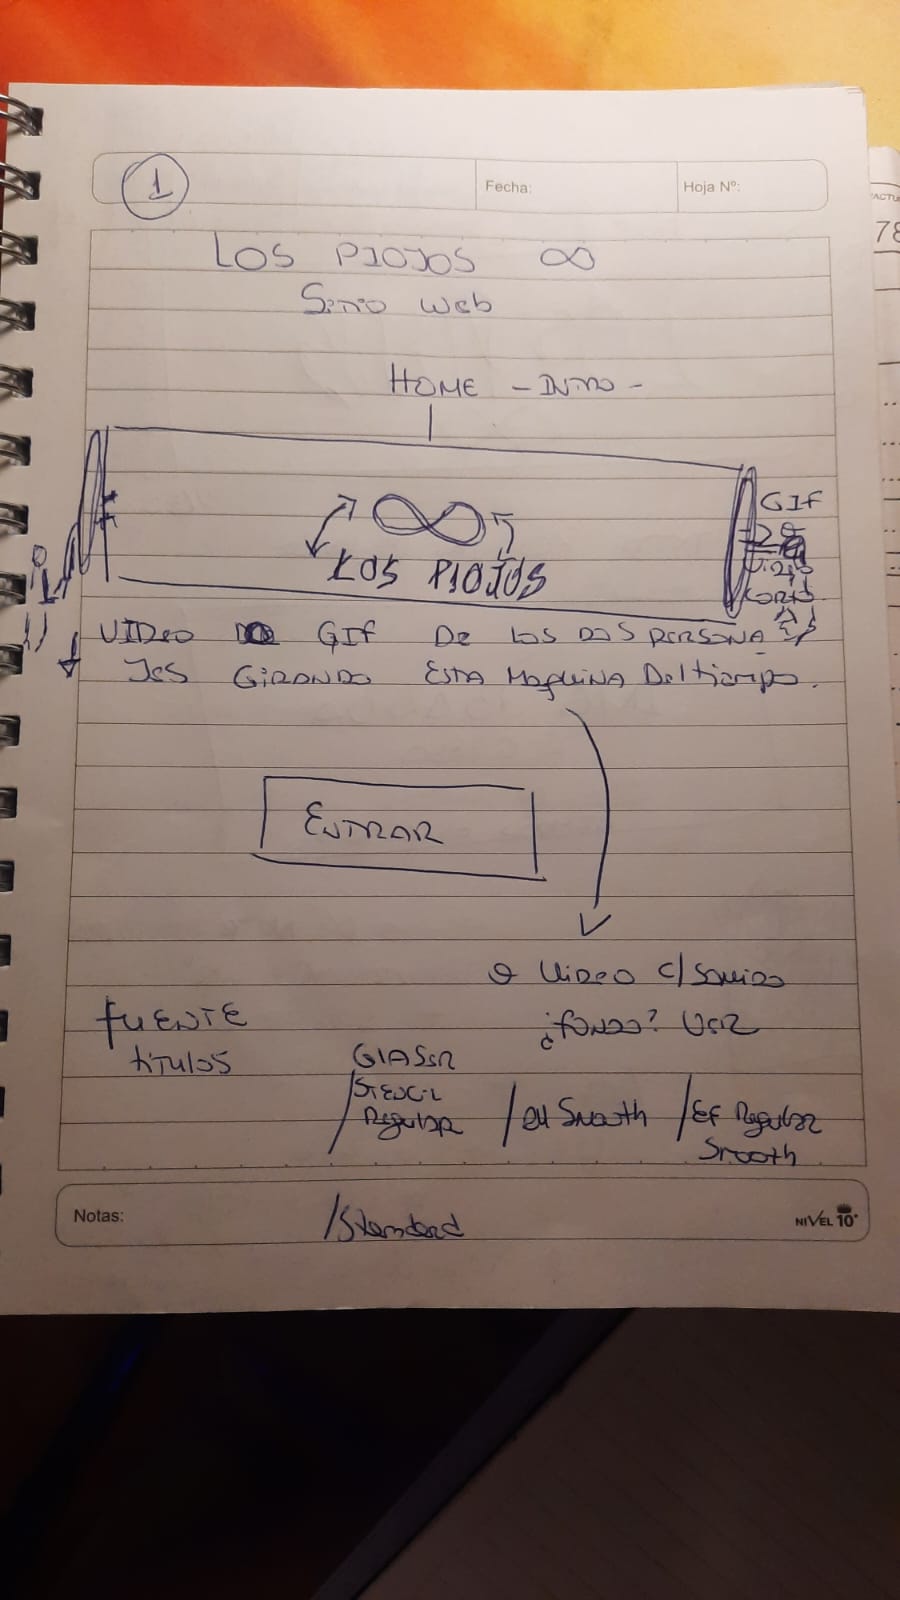 1
Fecha:
Hoja Nº:
LOS PIOJOS ∞
Sitio Web
HOME - INTRO -
∞
LOS PIOJOS
GIF
CORTO
VIDEO O GIF DE LOS DOS PERSONA
JES GIRANDO ESTA MAQUINA Deltiempo.
ENTRAR
O VIDEO C/SONIDO
¿FONDO? VER
FUENTE
títulos
GLASER
/STENCIL
Regular
/ Smooth
/EF Regular
Smooth
Notas:
/Standard
NIVEL 10
78